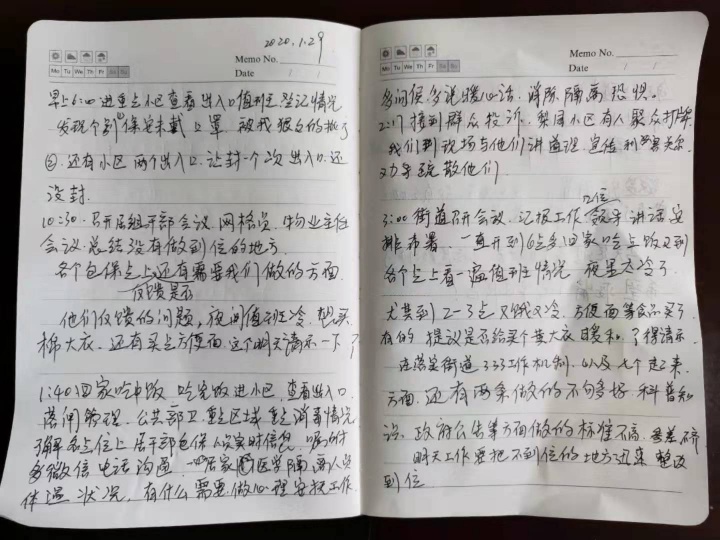 2020.1.29
Memo No.
Mo Tu We Th Fr Sa Su
Date / /
早上6:40进重点小区查看出入口值班登记情况
发现个别保安未戴口罩,被我狠狠的批了
②.还有小区两个出入口.让封一个次出入口.还
没封.
10:30.召开居组干部会议.网格员.物业主任
会议.总结没有做到位的地方.
各个包保点上还有需要我们做的方面.
反馈是否
他们反馈的问题,夜间值班冷.想买
棉大衣.还有买点方便面.这个明天请示一下了
1:40回家吃中饭 吃完饭进小区,查看出入口
落闸管理.公共部卫.重点区域重点消毒情况
了解各点位上居干部包保人员实时信息
多微信电话沟通.居家医学隔离人员
体温状况,有什么需要.做心理安抚工作.
Memo No.
Mo Tu We Th Fr Sa Su
Date / /
多问候.多说暖心话.消除隔离恐惧。
2:17接到群众投诉.梨园小区有人聚众打牌
我们到现场与他们讲道理.宣传利害关系.
劝导疏散他们.
口位
3:00街道召开会议.汇报工作领导讲话安
排布署.一直开到6点多回家吃点饭又到
各个点上看一遍值班情况 夜里太冷了.
尤其到2-3点又饿又冷.方便面等食品买了
有的提议是否给买个黄大衣暖和.了得请示
在落实街道333工作机制.以及七个起来.
方面.还有两条做的不够多好.科普知
识.政府公告等方面做的标准不高.
明天工作要把不到位的地方迅速整改
到位